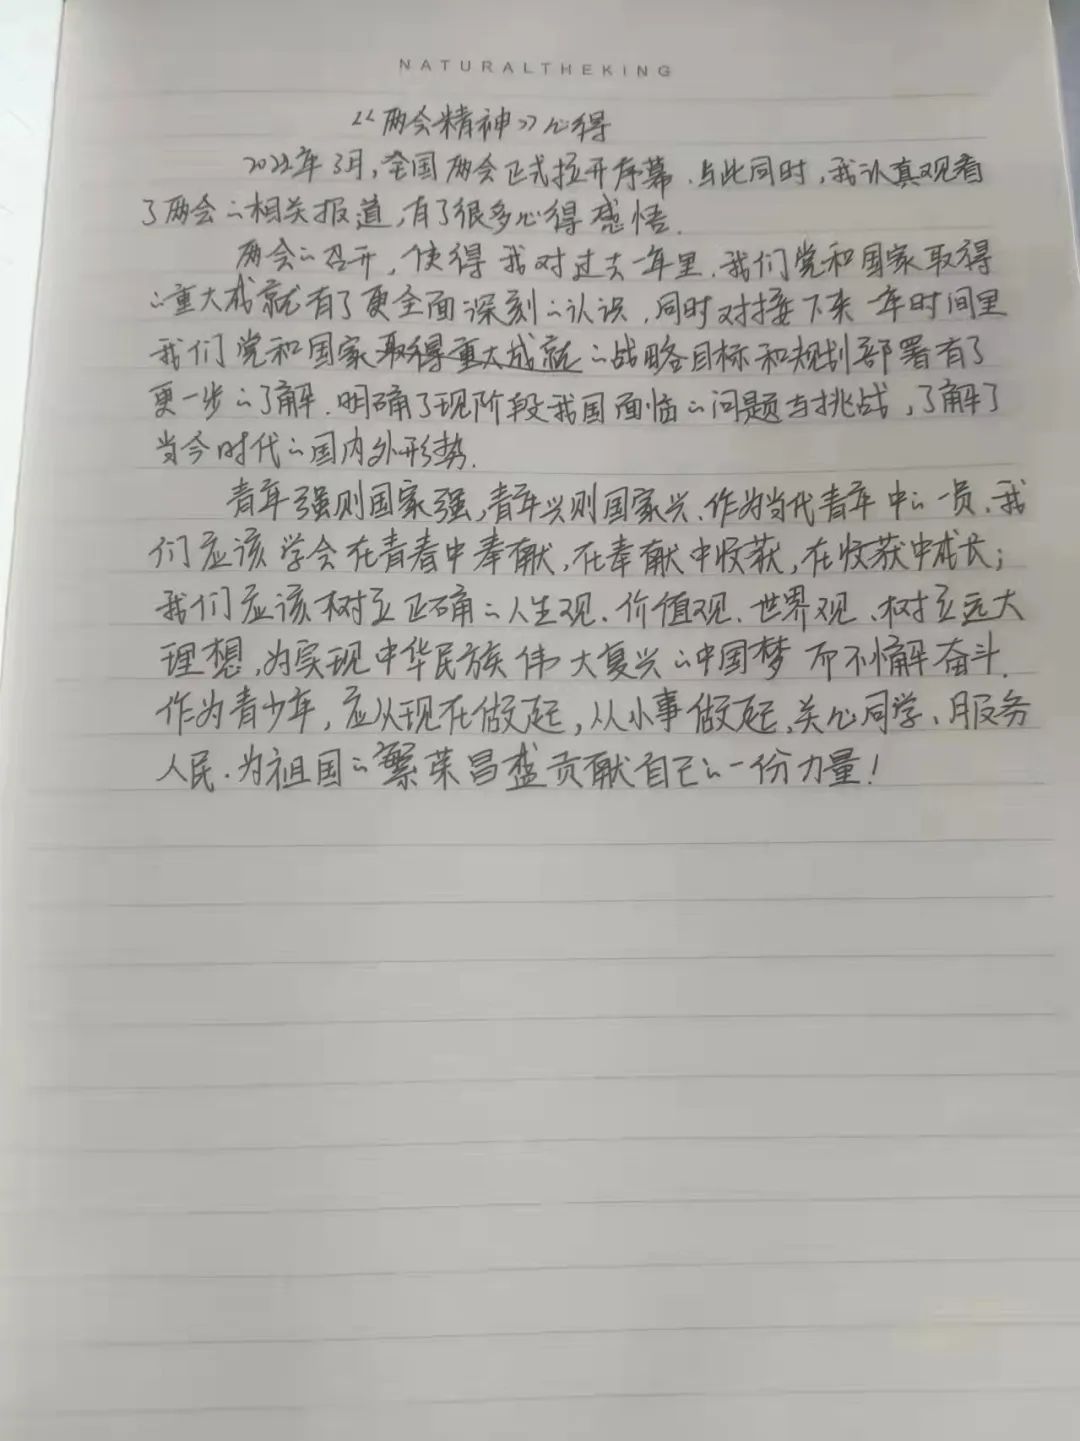 NATURALTHEKING
《两会精神》心得
2022年3月，全国两会正式拉开序幕，与此同时，我认真观看
了两会的相关报道，有了很多心得感悟。
两会的召开，使得我对过去一年里，我们党和国家取得
的重大成就有了更全面深刻的认识，同时对接下来一年时间里
我们党和国家取得重大成就的战略目标和规划部署有了
更一步的了解，明确了现阶段我国面临的问题与挑战，了解了
当今时代的国内外形势。
青年强则国家强，青年兴则国家兴，作为当代青年中的一员，我
们应该学会在青春中奉献，在奉献中收获，在收获中成长；
我们应该树立正确的人生观、价值观、世界观、树立远大
理想，为实现中华民族伟大复兴的中国梦而不懈奋斗。
作为青少年，应从现在做起，从小事做起，关心同学、服务
人民，为祖国的繁荣昌盛贡献自己的一份力量！